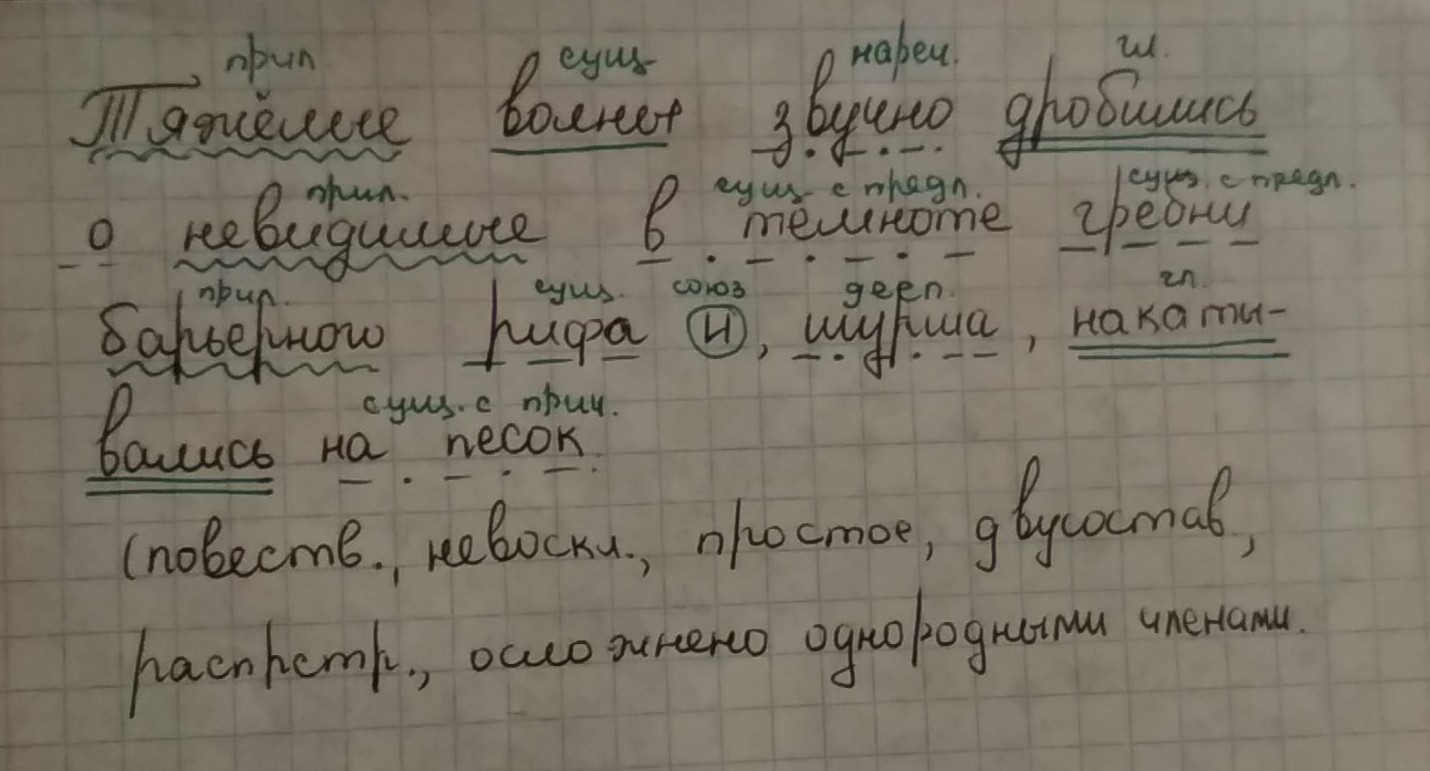 прил. сущ. нареч. гл.
Тяжёлые волны звучно дробились
прил. сущ. с предл. сущ. с предл.
о невидимые в темноте гребни
прил. сущ. союз дееп. гл.
барьерного рифа и, шурша, накаты-
сущ. с прич.
вались на песок.
(повеств., невоскл., простое, двусостав,
распрстр., осложнено однородными членами.